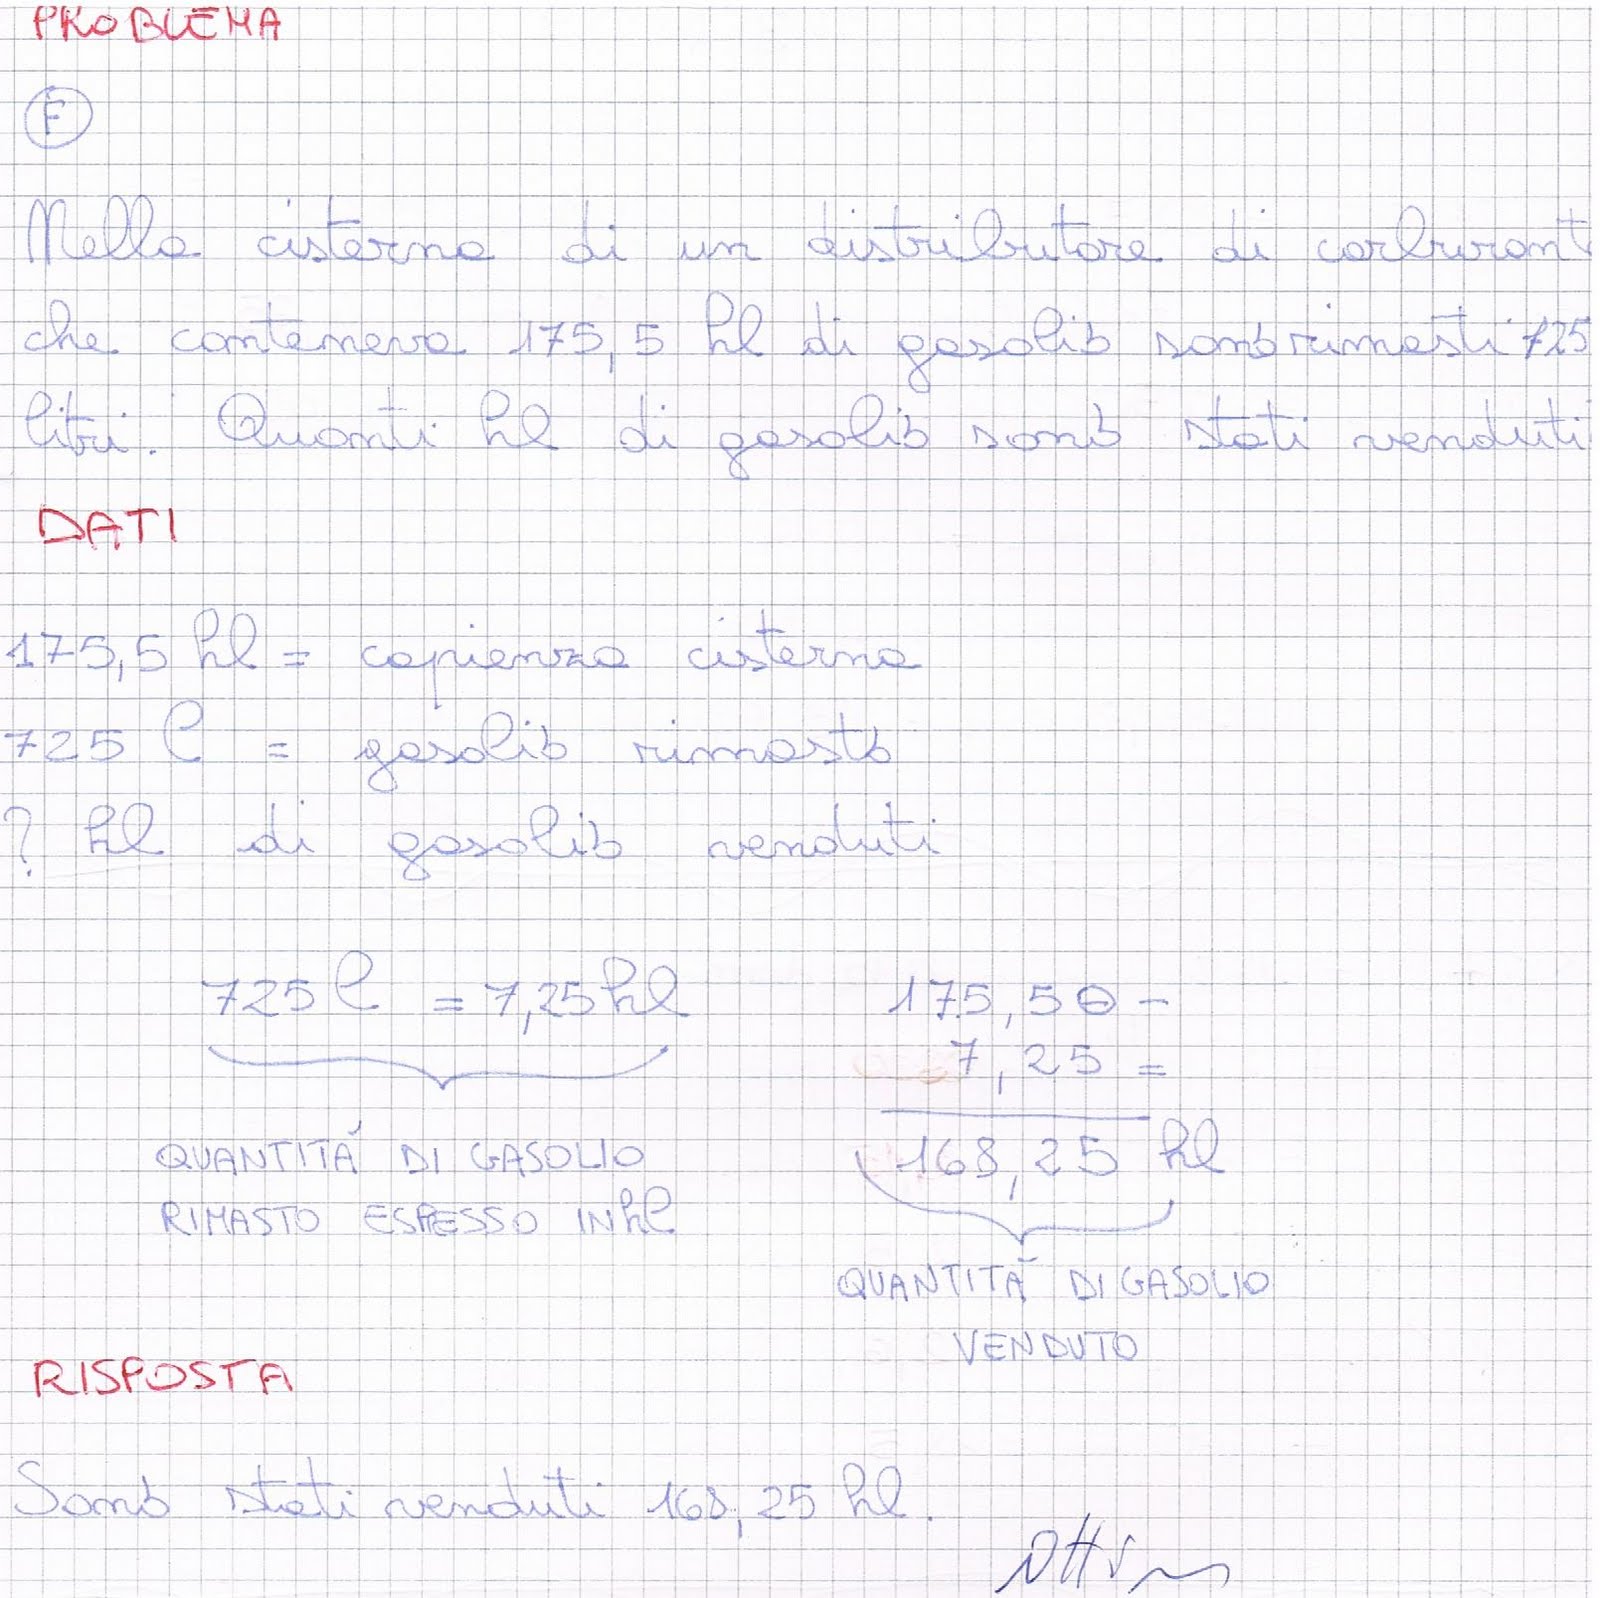 PROBLEMA
F
Nella cisterna di un distributore di carburant
che conteneva 175,5 hl di gasolio sono rimasti 725
litri. Quanti hl di gasolio sono stati venduti
DATI
175,5 hl = capienza cisterna
725 l = gasolio rimasto
? hl di gasolio venduti
725 l = 7,25 hl
QUANTITÀ DI GASOLIO
RIMASTO ESPRESSO IN hl
175,50 -
7,25 =
168,25 hl
QUANTITÀ DI GASOLIO
VENDUTO
RISPOSTA
Sono stati venduti 168,25 hl.